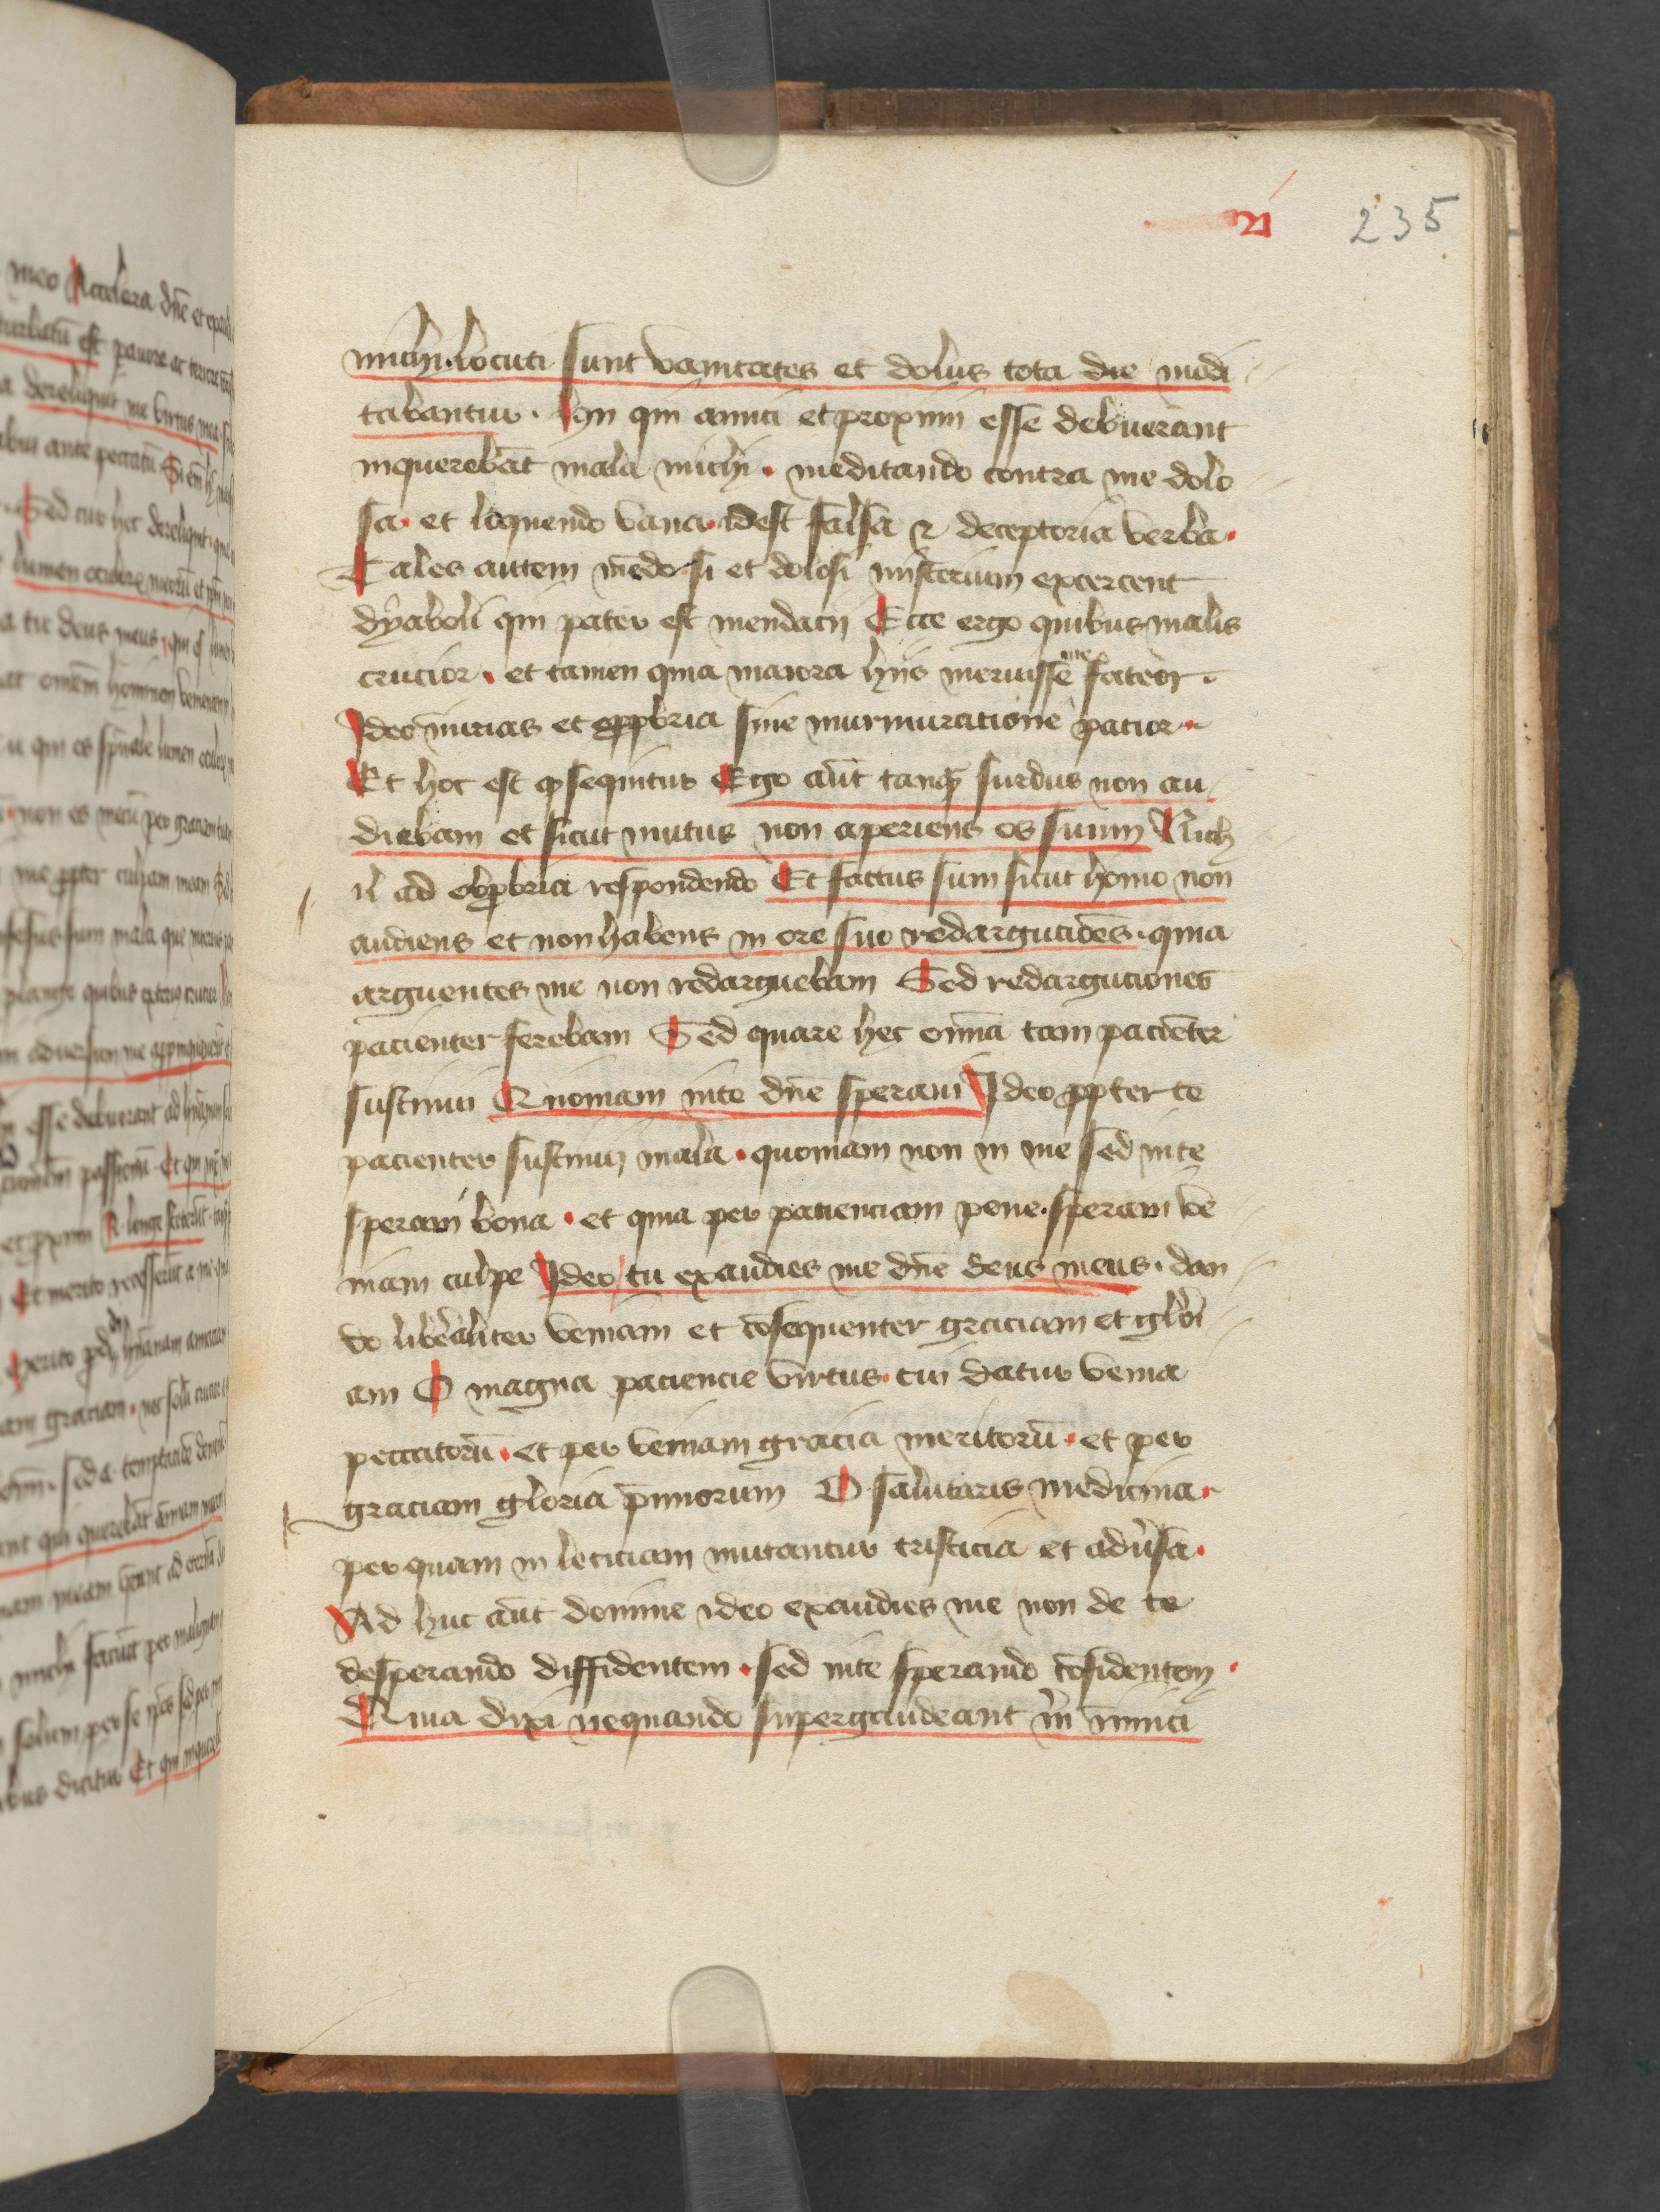 235
michi · locuti sunt vanitates et dolus tota die medi
tabantur · hij qui amici et proximi esse debuerant
inquerebāt mala michi · meditando contra me dolo
sa · et loquendo vana · idest falsa et deceptoria verba ·
Tales autem mēdosi et dolosi misterium excercent
dyaboli qui pater est mendacij Ecce ergo quibus malis
crucior · et tamen quia maiora hijs meruisse me fateor ·
Ideo iniurias et opprobria sine murmuratione patior ·
Et hoc est qđ sequitur Ego aūt tanq̄ surdus non au
diebam et sicut mutus non aperiens os suum Nich
il ad obprobria respondendo Et factus sum sicut homo non
audiens et non habens in ore suo redargucōes · quia
arguentes me non redarguebam Sed redarguciones
pacienter ferebam Sed quare hec omīa tam paciēter
sustinui Quoniam in te dn̄e speraui Ideo ꝓpter te
pacienter sustinui mala · quoniam non in me sed in te
speraui bona · et quia per pacienciam pene · speraui ve
niam culpe Ideo tu exaudies me dn̄e deus meus · dan
do liberaliter veniam et cōsequenter graciam et glori
am O magna paciencie virtus · cui datur venia
peccatorū · et per veniam gracia meritorū · et per
graciam gloria p̄miorum O salutaris medicina ·
per quam in leticiam mutantur tristicia et adūsa ·
Ad huc aūt domine ideo exaudies me non de te
desperando diffidentem · sed in te sperando cōfidentem ·
Quia dixi nequando supergaudeant m̄ inimici